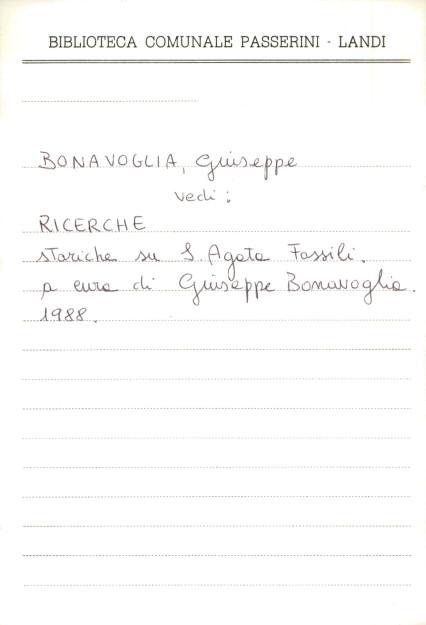 BIBLIOTECA COMUNALE PASSERINI - LANDI
BONAVOGLIA, Giuseppe
vedi:
RICERCHE
storiche su S. Agata Fossili.
a cura di Giuseppe Bonavoglia.
1988.